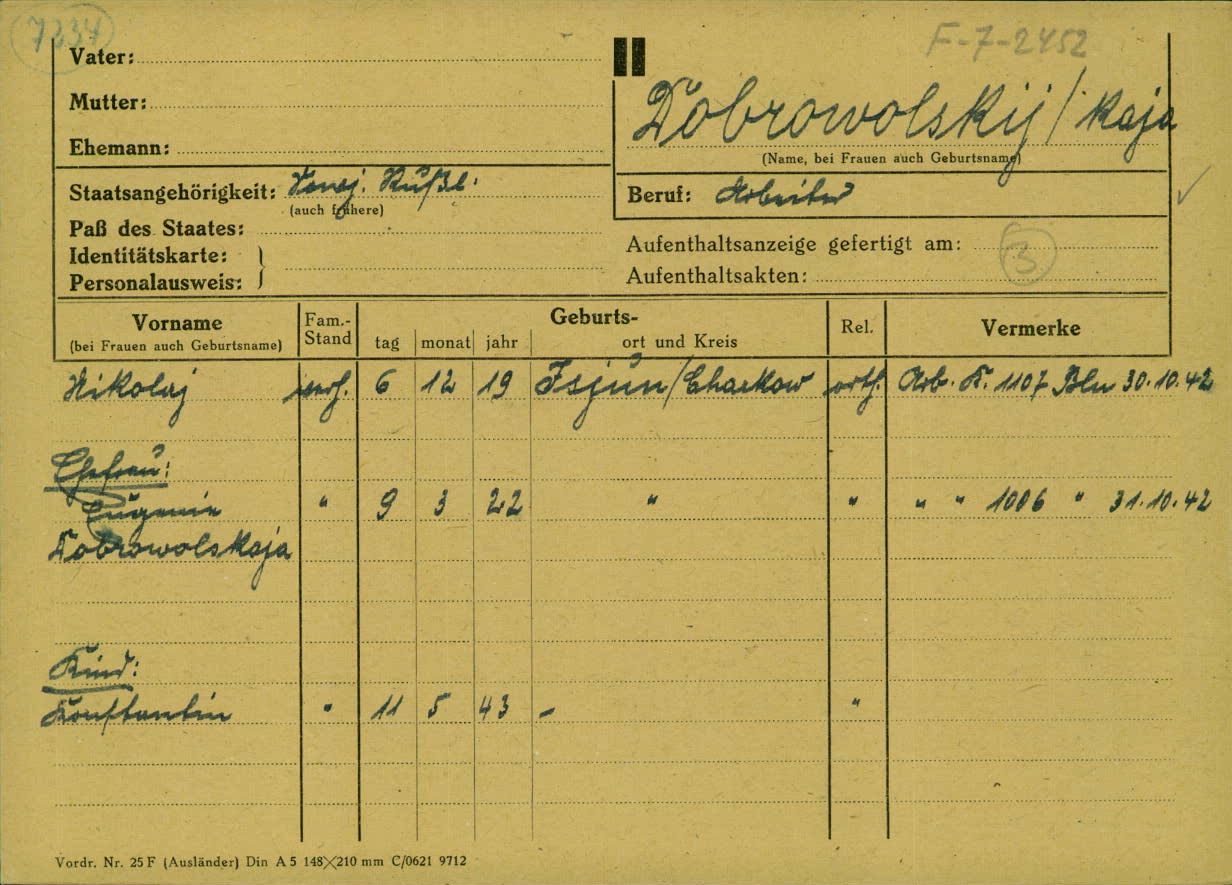 7234
F-7-2452
Vater:
Mutter:
Ehemann:
Dobrowolskij / kaja
(Name, bei Frauen auch Geburtsname)
Staatsangehörigkeit: Sowj. Rußl.
(auch frühere)
Beruf: Arbeiter
Paß des Staates:
Identitätskarte:
Personalausweis:
Aufenthaltsanzeige gefertigt am:
3
Aufenthaltsakten:
Vorname
(bei Frauen auch Geburtsname)
Fam.-
Stand
Geburts-
tag monat jahr ort und Kreis
Rel.
Vermerke
Nikolaj verh. 6 12 19 Isjùm/Charkow orth. Arb. K. 1107 Bln 30.10.42
Ehefrau:
Eugenie " 9 3 22 " " " " 1006 " 31.10.42
Dobrowolskaja
Kind:
Konstantin " 11 5 43 – "
Vordr. Nr. 25 F (Ausländer) Din A 5 148×210 mm C/0621 9712